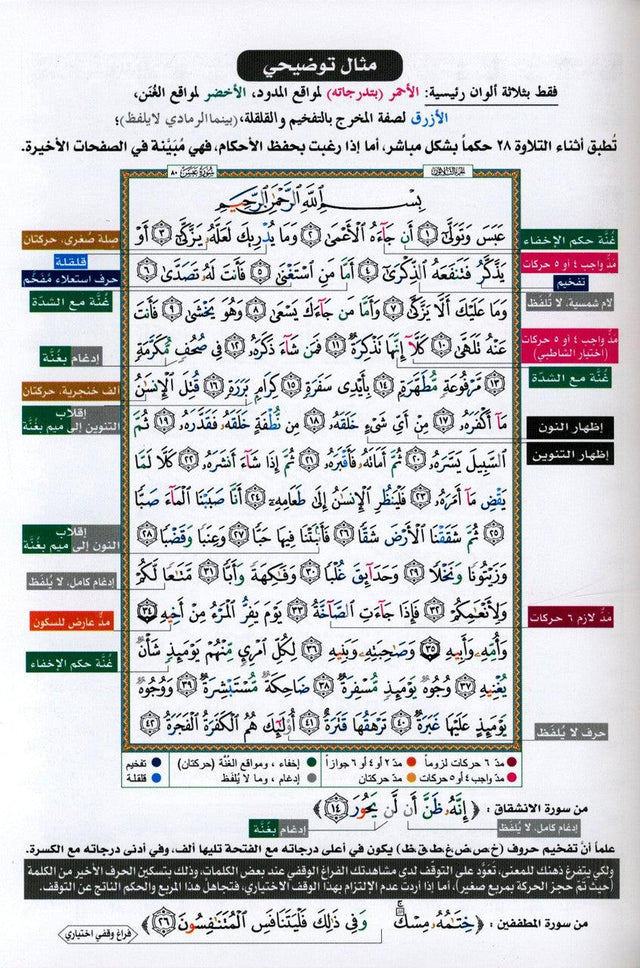 مثال توضيحي
فقط بثلاثة ألوان رئيسية: الأحمر (بتدرجاته) لمواقع المدود، الأخضر لمواقع الغُنَن،
الأزرق لصفة المخرج بالتفخيم والقلقلة، (بينما الرمادي لا يلفظ)؛
تُطبق أثناء التلاوة ٢٨ حكماً بشكل مباشر، أما إذا رغبت بحفظ الأحكام، فهي مُبَيَّنة في الصفحات الأخيرة.
سُورَةُ عَبَسَ ٨٠
بِسْمِ اللَّهِ الرَّحْمَٰنِ الرَّحِيمِ
عَبَسَ وَتَوَلَّىٰٓ ١ أَن جَآءَهُ ٱلْأَعْمَىٰ ٢ وَمَا يُدْرِيكَ لَعَلَّهُۥ يَزَّكَّىٰٓ ٣ أَوْ
يَذَّكَّرُ فَتَنفَعَهُ ٱلذِّكْرَىٰٓ ٤ أَمَّا مَنِ ٱسْتَغْنَىٰ ٥ فَأَنتَ لَهُۥ تَصَدَّىٰ ٦
وَمَا عَلَيْكَ أَلَّا يَزَّكَّىٰ ٧ وَأَمَّا مَن جَآءَكَ يَسْعَىٰ ٨ وَهُوَ يَخْشَىٰ ٩ فَأَنتَ
عَنْهُ تَلَهَّىٰ ١٠ كَلَّآ إِنَّهَا تَذْكِرَةٌ ١١ فَمَن شَآءَ ذَكَرَهُۥ ١٢ فِى صُحُفٍ مُّكَرَّمَةٍ
١٣ مَّرْفُوعَةٍ مُّطَهَّرَةٍۭ ١٤ بِأَيْدِى سَفَرَةٍ ١٥ كِرَامٍۭ بَرَرَةٍ ١٦ قُتِلَ ٱلْإِنسَٰنُ
مَآ أَكْفَرَهُۥ ١٧ مِنْ أَىِّ شَىْءٍ خَلَقَهُۥ ١٨ مِن نُّطْفَةٍ خَلَقَهُۥ فَقَدَّرَهُۥ ١٩ ثُمَّ
ٱلسَّبِيلَ يَسَّرَهُۥ ٢٠ ثُمَّ أَمَاتَهُۥ فَأَقْبَرَهُۥ ٢١ ثُمَّ إِذَا شَآءَ أَنشَرَهُۥ ٢٢ كَلَّا لَمَّا
يَقْضِ مَآ أَمَرَهُۥ ٢٣ فَلْيَنظُرِ ٱلْإِنسَٰنُ إِلَىٰ طَعَامِهِۦٓ ٢٤ أَنَّا صَبَبْنَا ٱلْمَآءَ صَبًّا
٢٥ ثُمَّ شَقَقْنَا ٱلْأَرْضَ شَقًّا ٢٦ فَأَنۢبَتْنَا فِيهَا حَبًّا ٢٧ وَعِنَبًا وَقَضْبًا ٢٨
وَزَيْتُونًا وَنَخْلًا ٢٩ وَحَدَآئِقَ غُلْبًا ٣٠ وَفَٰكِهَةً وَأَبًّا ٣١ مَّتَٰعًا لَّكُمْ
وَلِأَنْعَٰمِكُمْ ٣٢ فَإِذَا جَآءَتِ ٱلصَّآخَّةُ ٣٣ يَوْمَ يَفِرُّ ٱلْمَرْءُ مِنْ أَخِيهِ ٣٤
وَأُمِّهِۦ وَأَبِيهِ ٣٥ وَصَٰحِبَتِهِۦ وَبَنِيهِ ٣٦ لِكُلِّ ٱمْرِئٍ مِّنْهُمْ يَوْمَئِذٍ شَأْنٌ
يُغْنِيهِ ٣٧ وُجُوهٌ يَوْمَئِذٍ مُّسْفِرَةٌ ٣٨ ضَاحِكَةٌ مُّسْتَبْشِرَةٌ ٣٩ وَوُجُوهٌ
يَوْمَئِذٍ عَلَيْهَا غَبَرَةٌ ٤٠ تَرْهَقُهَا قَتَرَةٌ ٤١ أُو۟لَٰٓئِكَ هُمُ ٱلْكَفَرَةُ ٱلْفَجَرَةُ ٤٢
غُنَّة حكم الإخفاء
مدّ واجب ٤ أو ٥ حركات
تفخيم
لام شمسية، لا تُلفَظ
مدّ واجب ٤ أو ٥ حركات
(اختيار الشاطبي)
غُنَّة مع الشدّة
إظهار النون
إظهار التنوين
مدّ لازم ٦ حركات
حرف لا يُلفَظ
صلة صُغرى، حركتان
قلقلة
حرف استعلاء مُفَخَّم
غُنَّة مع الشدّة
إدغام بغُنَّة
ألف خنجرية، حركتان
إقلاب
التنوين إلى ميم بغُنَّة
إقلاب
النون إلى ميم بغُنَّة
إدغام كامل، لا يُلفظ
مدّ عارض للسكون
غُنَّة حكم الإخفاء
مدّ ٦ حركات لزوماً مدّ ٢ أو ٤ أو ٦ جوازاً إخفاء، ومواقع الغُنَّة (حركتان) تفخيم
مدّ واجب ٤ أو ٥ حركات مدّ حركتان إدغام، وما لا يُلفَظ قلقلة
من سورة الانشقاق : ﴿ إِنَّهُۥ ظَنَّ أَن لَّن يَحُورَ ١٤ ﴾
إدغام كامل، لا يُلفظ إدغام بغُنَّة
علماً أنّ تفخيم حروف (خ.ص.ض.غ.ط.ق.ظ) يكون في أعلى درجاته مع الفتحة تليها ألف، وفي أدنى درجاته مع الكسرة.
ولكي يتفرغ ذهنك للمعنى، تَعَوَّد على التوقّف لدى مشاهدتك الفراغ الوقفي عند بعض الكلمات، وذلك بتسكين الحرف الأخير من الكلمة
(حيث تمّ حجز الحركة بمربع صغير)، أما إذا أردت عدم الإلتزام بهذا الوقف الاختياري، فتجاهل هذا المربع والحكم الناتج عن التوقف.
من سورة المطففين : ﴿ خِتَٰمُهُۥ مِسْكٌ وَفِى ذَٰلِكَ فَلْيَتَنَافَسِ ٱلْمُتَنَٰفِسُونَ ٢٦ ﴾
فراغ وقفي اختياري